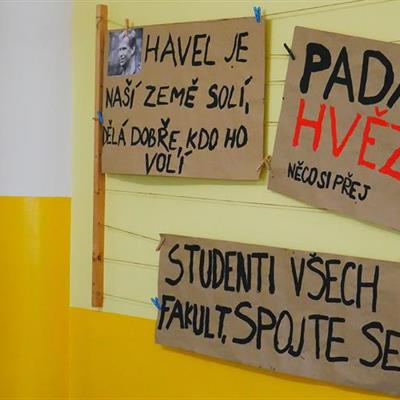 HAVEL JE
NAŠÍ ZEMĚ SOLÍ,
DĚLÁ DOBŘE, KDO HO
VOLÍ
PADÁ
HVĚZ
NĚCO SI PŘEJ
STUDENTI VŠECH
FAKULT, SPOJTE SE